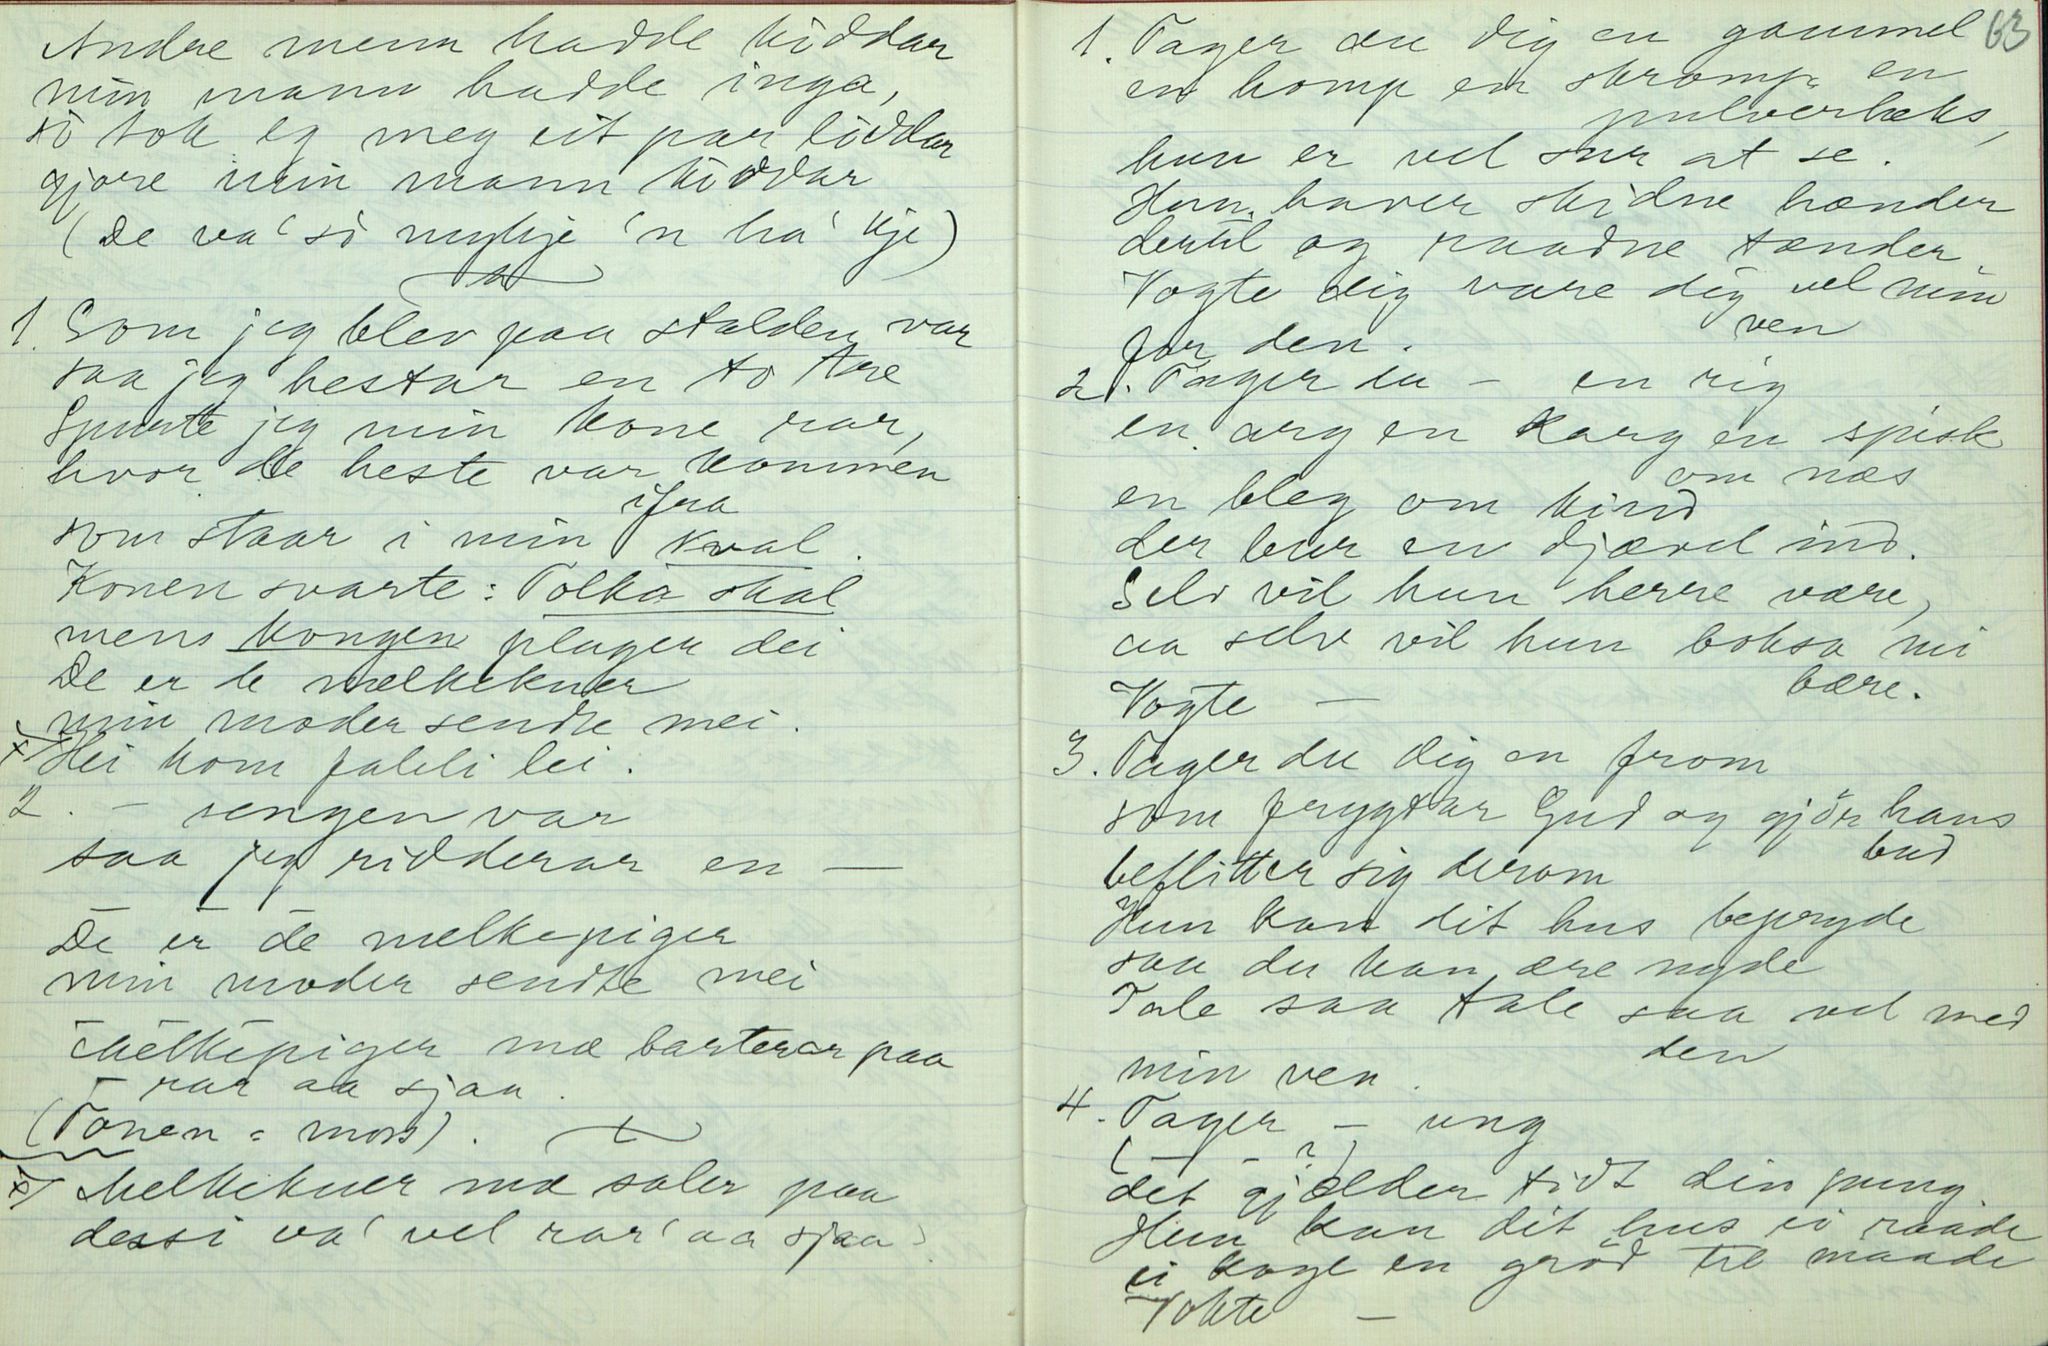 Andre menn hadde kiddar
min mann hadde inga,
so tok eg meg eit par loddar
gjore min mann kiddar
(De va' so nyttje 'n ha' kje)
1. Som jeg blev paa stalden var
saa jeg hestar en to tre
Spurte jeg min kone rar,
hvor de heste var kommen
ifra
som staar i min kval.
Konen svarte: Tolka skal
mens kongen plager dei
De er de melkekuer
min moder sendte mei.
x) Hei kom falili lei.
2. – sengen var
saa jeg ridderar en —
De er de melkepiger
min moder sendte mei
Melkepiger mæ barterar paa
– rar aa sjaa.
(Tonen = mors).
x) Melkekuer mæ saler paa
dessi va' vel rar' aa sjaa.
63
1. Tager du dig en gammel
en homp en skromp en
pulverheks,
hun er vel sur at se.
Hun haver skidne hænder
dertil og raadne tænder.
Vogte dig vare dig vel min
ven
for den.
2. Tager du – en rig
en arg en karg en spisk
om næs
en bleg om kind
der bur en djævel ind.
Selv vil hun herre være,
aa selv vil hun boksa ni
bære.
Vogte —
3. Tager du dig en from
som frygtar Gud og gjör hans
bud
beflitter sig derom
Hun kan dit hus bepryde
saa du kan ære nyde
Tale saa tale saa vel med
den
min ven.
4. Tager – ung
( — – ?)
det gjælder tidt din pung.
Hun kan dit hus ei raade
ei koge en gröd til maade
Vokte —